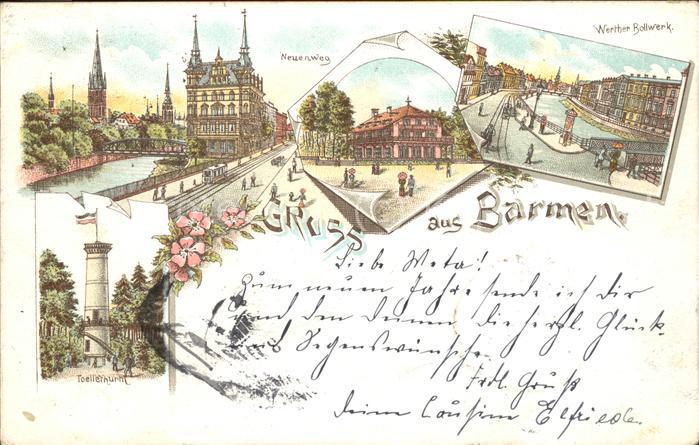 Neuenweg
Werther Bollwerk.
Gruss aus Barmen.
Toellethurm
Liebe Meta!
Zum neuen Jahre sende ich dir
und den Deinen die herzl. Glück-
und Segenswünsche.
Frdl. Gruß
deine Cousine Elfriede.